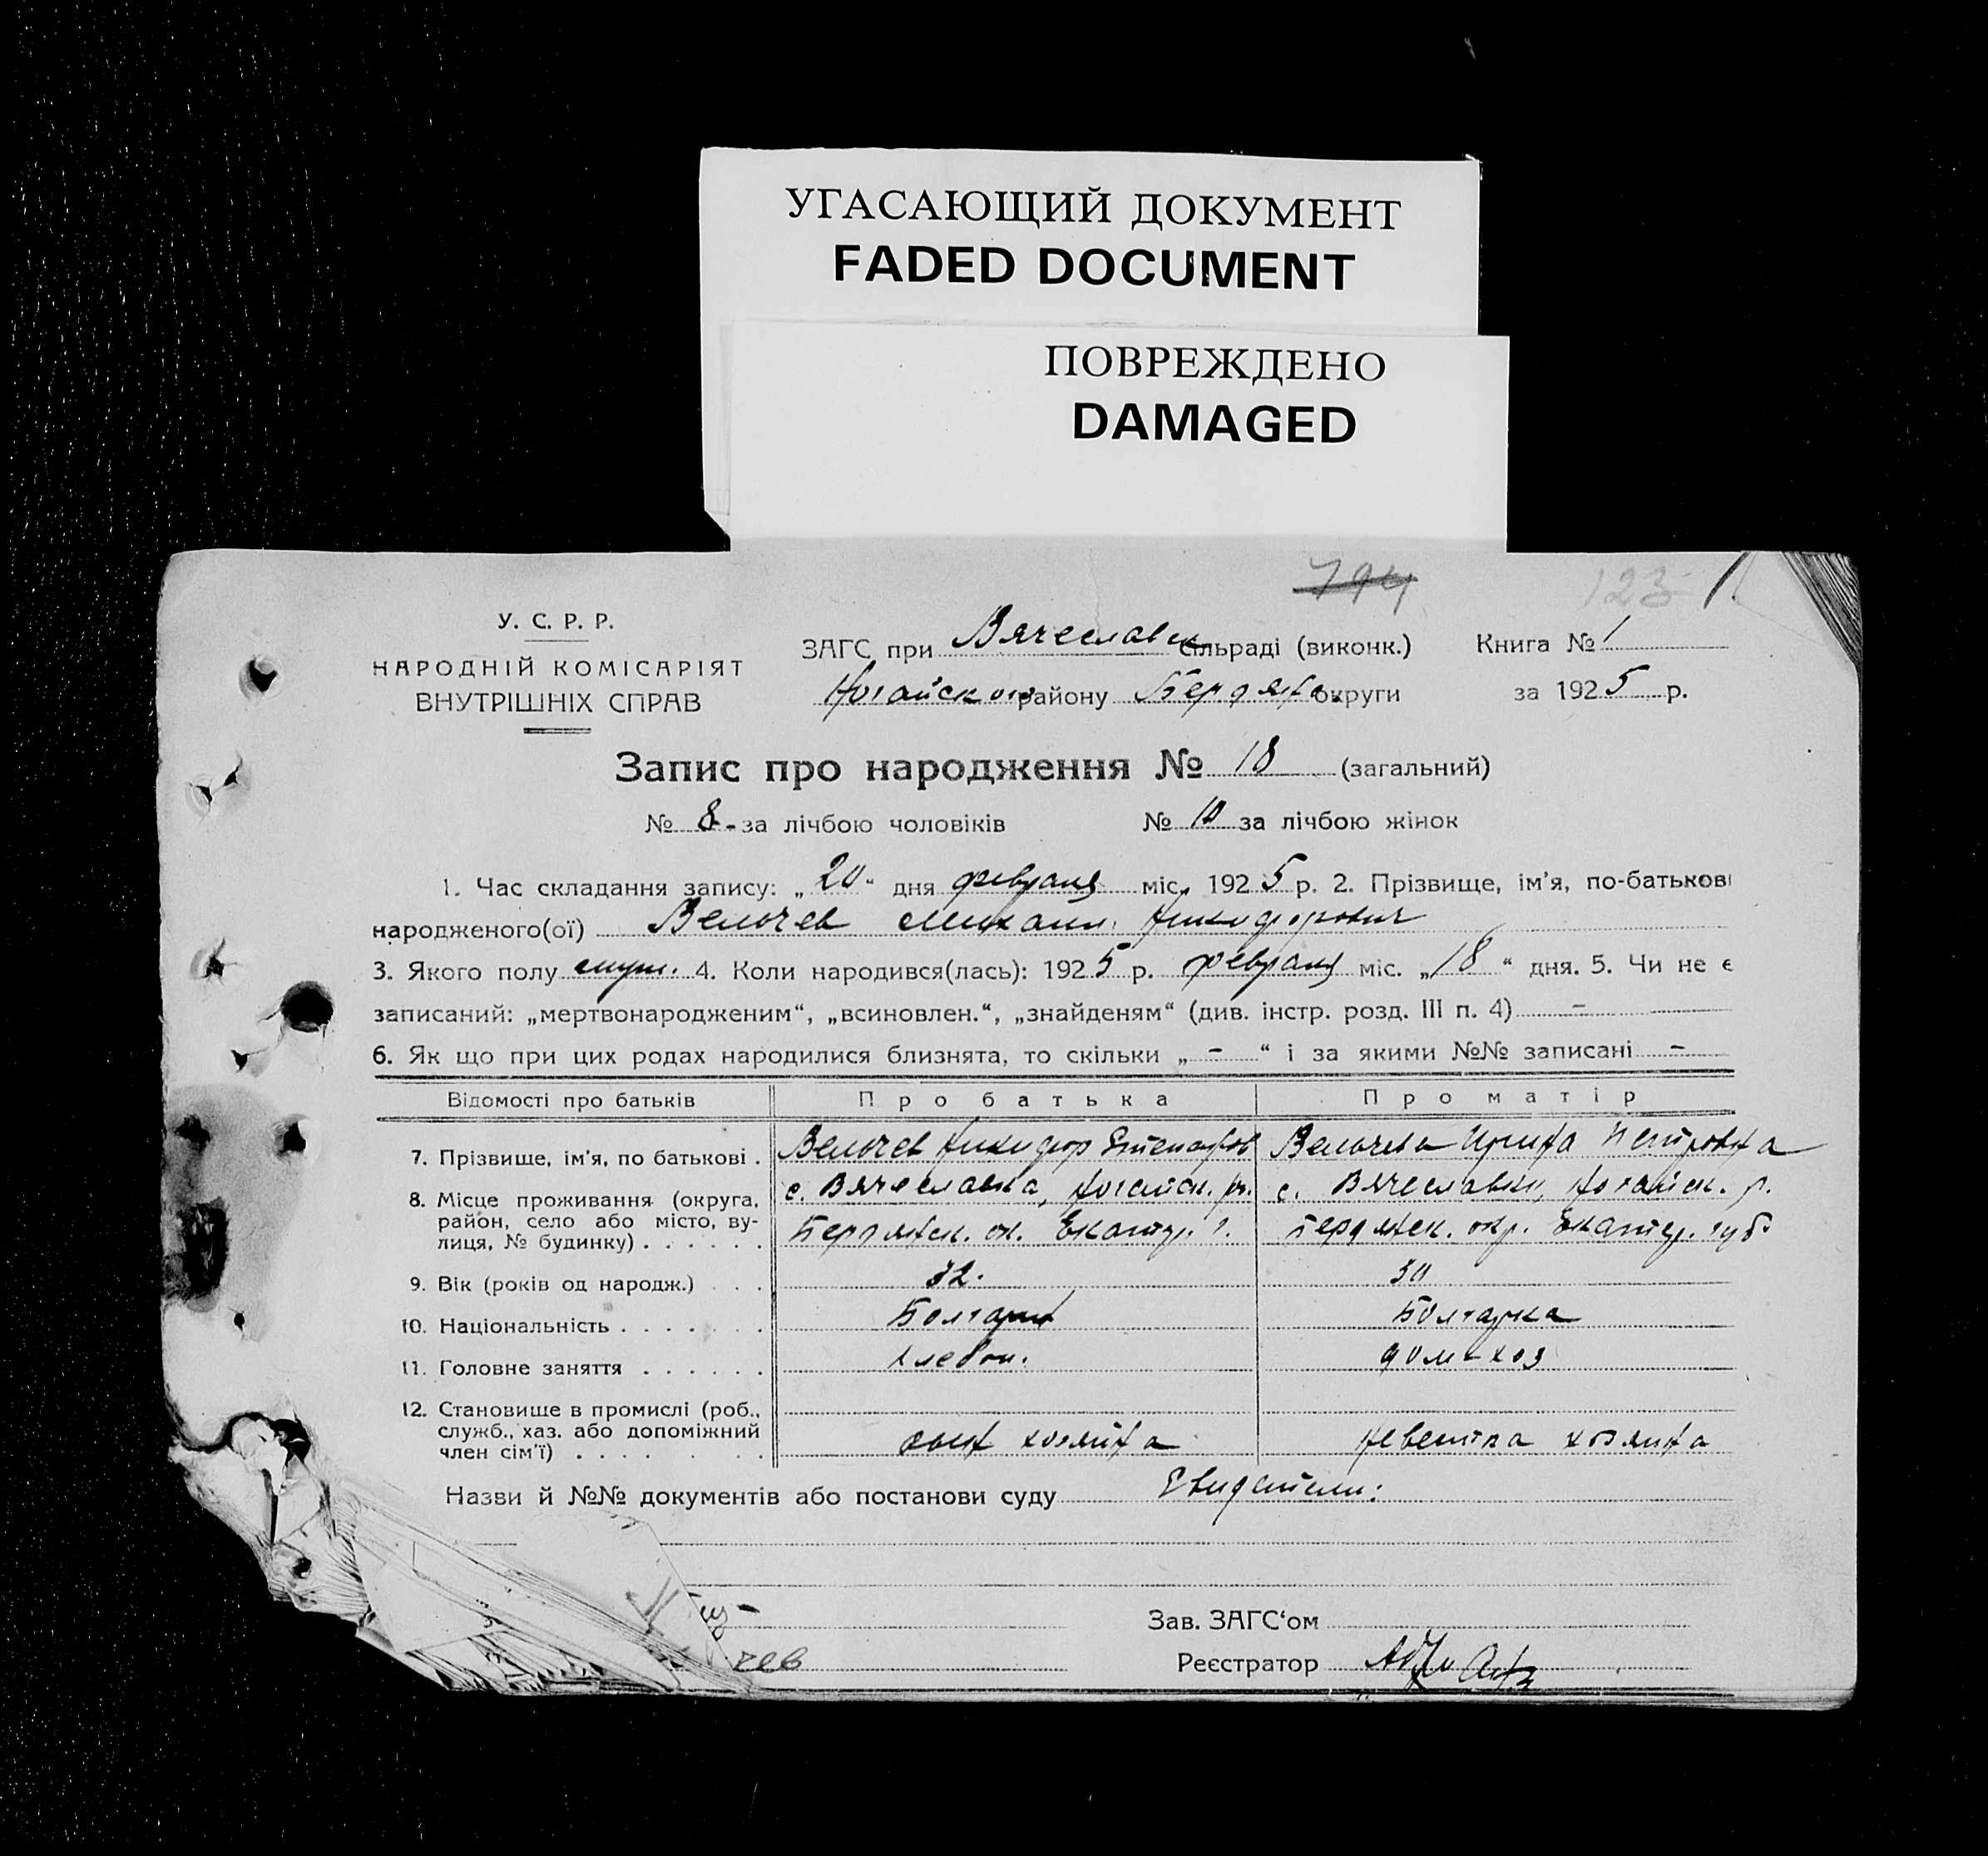 УГАСАЮЩИЙ ДОКУМЕНТ
FADED DOCUMENT
ПОВРЕЖДЕНО
DAMAGED
794 123
У. С. Р. Р.
НАРОДНІЙ КОМІСАРІЯТ
ВНУТРІШНІХ СПРАВ
ЗАГС при Вячеславк сільраді (виконк.) Книга № 1
Ногайского району Бердянс. округи за 1925 р.
Запис про народження № 18 (загальний)
№ 8 - за лічбою чоловіків № 10 за лічбою жінок
1. Час складання запису: „20“ дня февраля міс. 1925 р. 2. Прізвище, ім'я, по-батькові
народженого(ої) Велчев Михаил Никифорович
3. Якого полу муж. 4. Коли народився(лась): 1925 р. февраля міс. „18“ дня. 5. Чи не є
записаний: „мертвонародженим“, „всиновлен.“, „знайденям“ (див. інстр. розд. III п. 4) -
6. Як що при цих родах народилися близнята, то скільки „ - “ і за якими №№ записані -
Відомості про батьків Про батька Про матір
7. Прізвище, ім'я, по батькові . Велчев Никифор Степанов Велчева Ирина Петровна
8. Місце проживання (округа, район, село або місто, ву- лиця, № будинку) . . . . . .
с. Вячеславка, Ногайск. р. с. Вячеславки, Ногайск. р.
Бердянск. ок. Екатер. г. Бердянск. окр. Екатер. губ.
9. Вік (років од народж.) . . . 32. 30
10. Національність . . . . . . . Болгарин Болгарка
11. Головне заняття . . . . . . хлебоп. дом-хоз
12. Становище в промислі (роб., служб., хаз. або допоміжний член сім'ї) . . . . . .
сын хозяина невестка хозяина
Назви й №№ документів або постанови суду Свидетели:
Зав. ЗАГС‘ом
чев Реєстратор